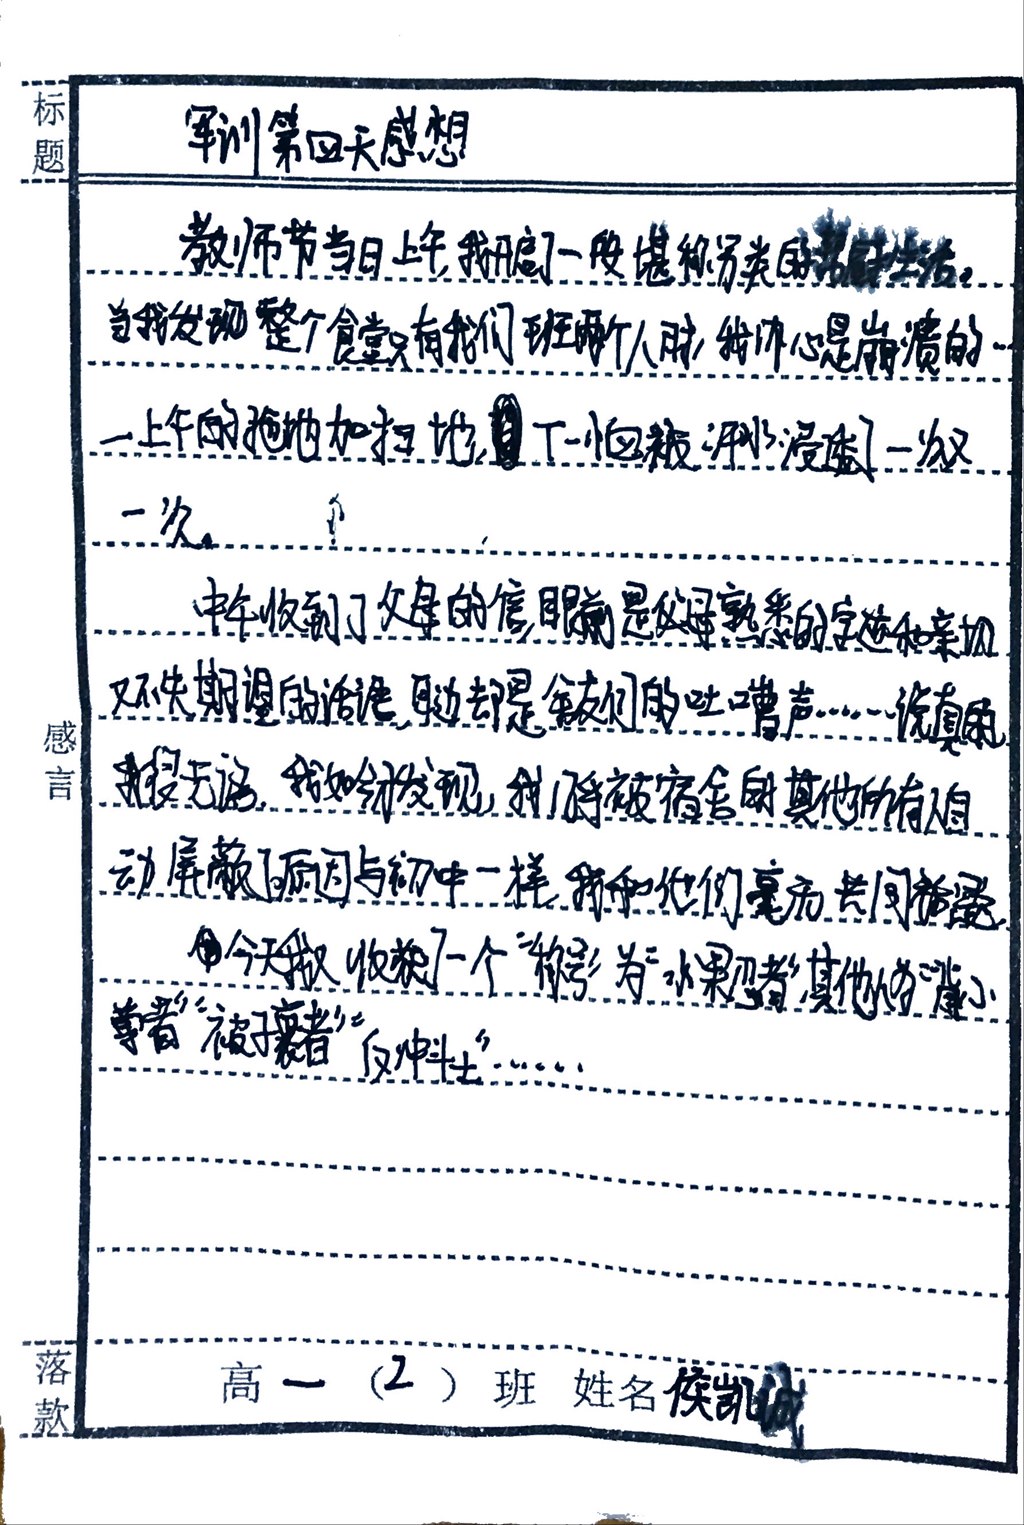 标题
军训第四天感想
教师节当日上午,我开启了一段堪称另类的帮厨生活。
当我发现整个食堂只有我们班两个人时,我内心是崩溃的…
一上午的拖地加扫地,T-恤被汗水浸透了一次又
一次。
中午收到了父母的信,眼前是父母熟悉的字迹和亲切
又不失期望的话语,耳边却是舍友们的吐口曹声……说真的,
我很无语。我如今发现,我将被宿舍的其他所有人自
动屏蔽了。原因与初中一样,我和他们毫无共同话题。
今天我又收获了一个“称号”为“水果忍者”,其他人为“瘦小
尊者”“被子襄者”“反冲斗士”……
感言
落款
高一(2)班 姓名侯凯诚